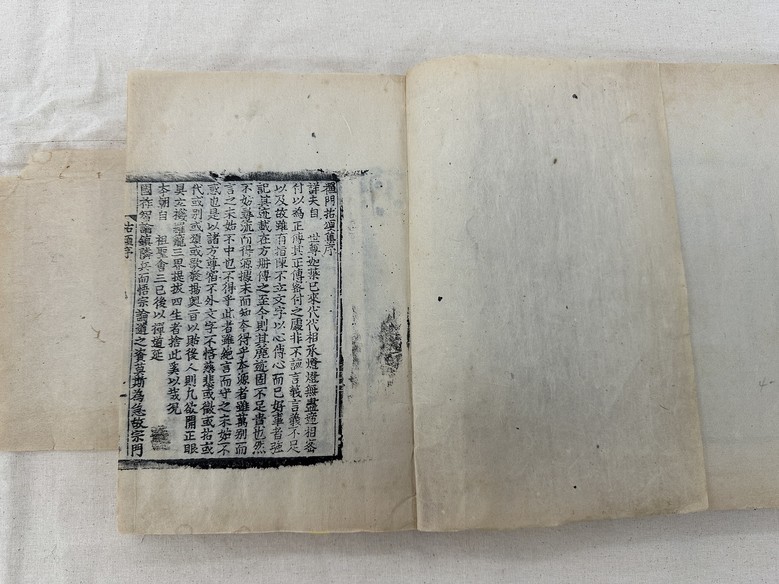 禪門拈頌集序
詳夫自　世尊迦葉已來代代相承燈燈無盡遞相密
付以為正傳其正傳密付之處非不該言義言義不足
以及故雖有指陳不立文字以心傳心而已好事者强
記其迹載在方冊傳之至今則其麁迹固不足貴也然
不妨尋流而得源據末而知本得乎本源者雖萬別而
言之未始不中也不得乎此者雖絶言而守之未始不
惑也是以諸方尊宿不外文字不悋慈悲或徵或拈或
代或別或頌或歌發揚奧旨以貽後人則凡欲開正眼
具玄機羅籠三界提拔四生者捨此奚以哉況
本朝自　祖聖會三已後以禪道延
國祚智論鎮隣兵而悟宗論道之資莫斯為急故宗門
拈頌序